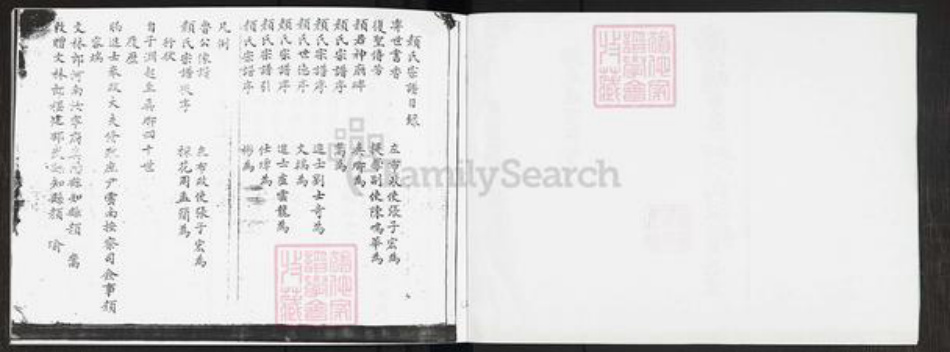 顏氏宗譜目錄
專世書香 左布政使張子宏為
復聖傳芳 提學副使陳鳴華為
顏君神廟碑 真卿為
顏氏宗譜序 嵩為
顏氏宗譜序 進士劉士奇為
顏氏世德序 文瑞為
顏氏宗譜序 進士盧雲龍為
顏氏宗譜引 仕璋為
顏氏宗譜序 彬為
凡例
魯公像譜 左布政使張子宏為
顏氏宗譜又序 探花周孟簡為
行狀
自子淵起至真卿四十世
履歷
賜進士奉政大夫修 庶尹雲南按察司僉事顏容端
文林郎河南汝寧府 縣知縣顏嵩
敕贈文林郎福建邵武 知縣顏瑜
FamilySearch